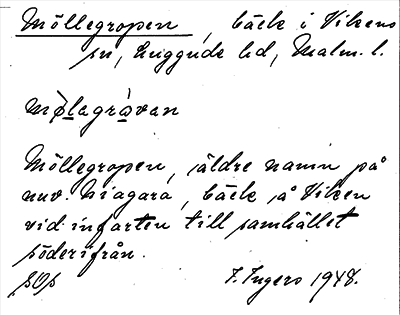 Möllegropen, bäck i Vikens
sn, Luggude hd, Malm. l.
mø̀lagrǻvan
Möllegropen, äldre namn på
nuv. Niagara, bäck å Viken
vid infarten till samhället
söderifrån.
SOs I. Ingers 1948.